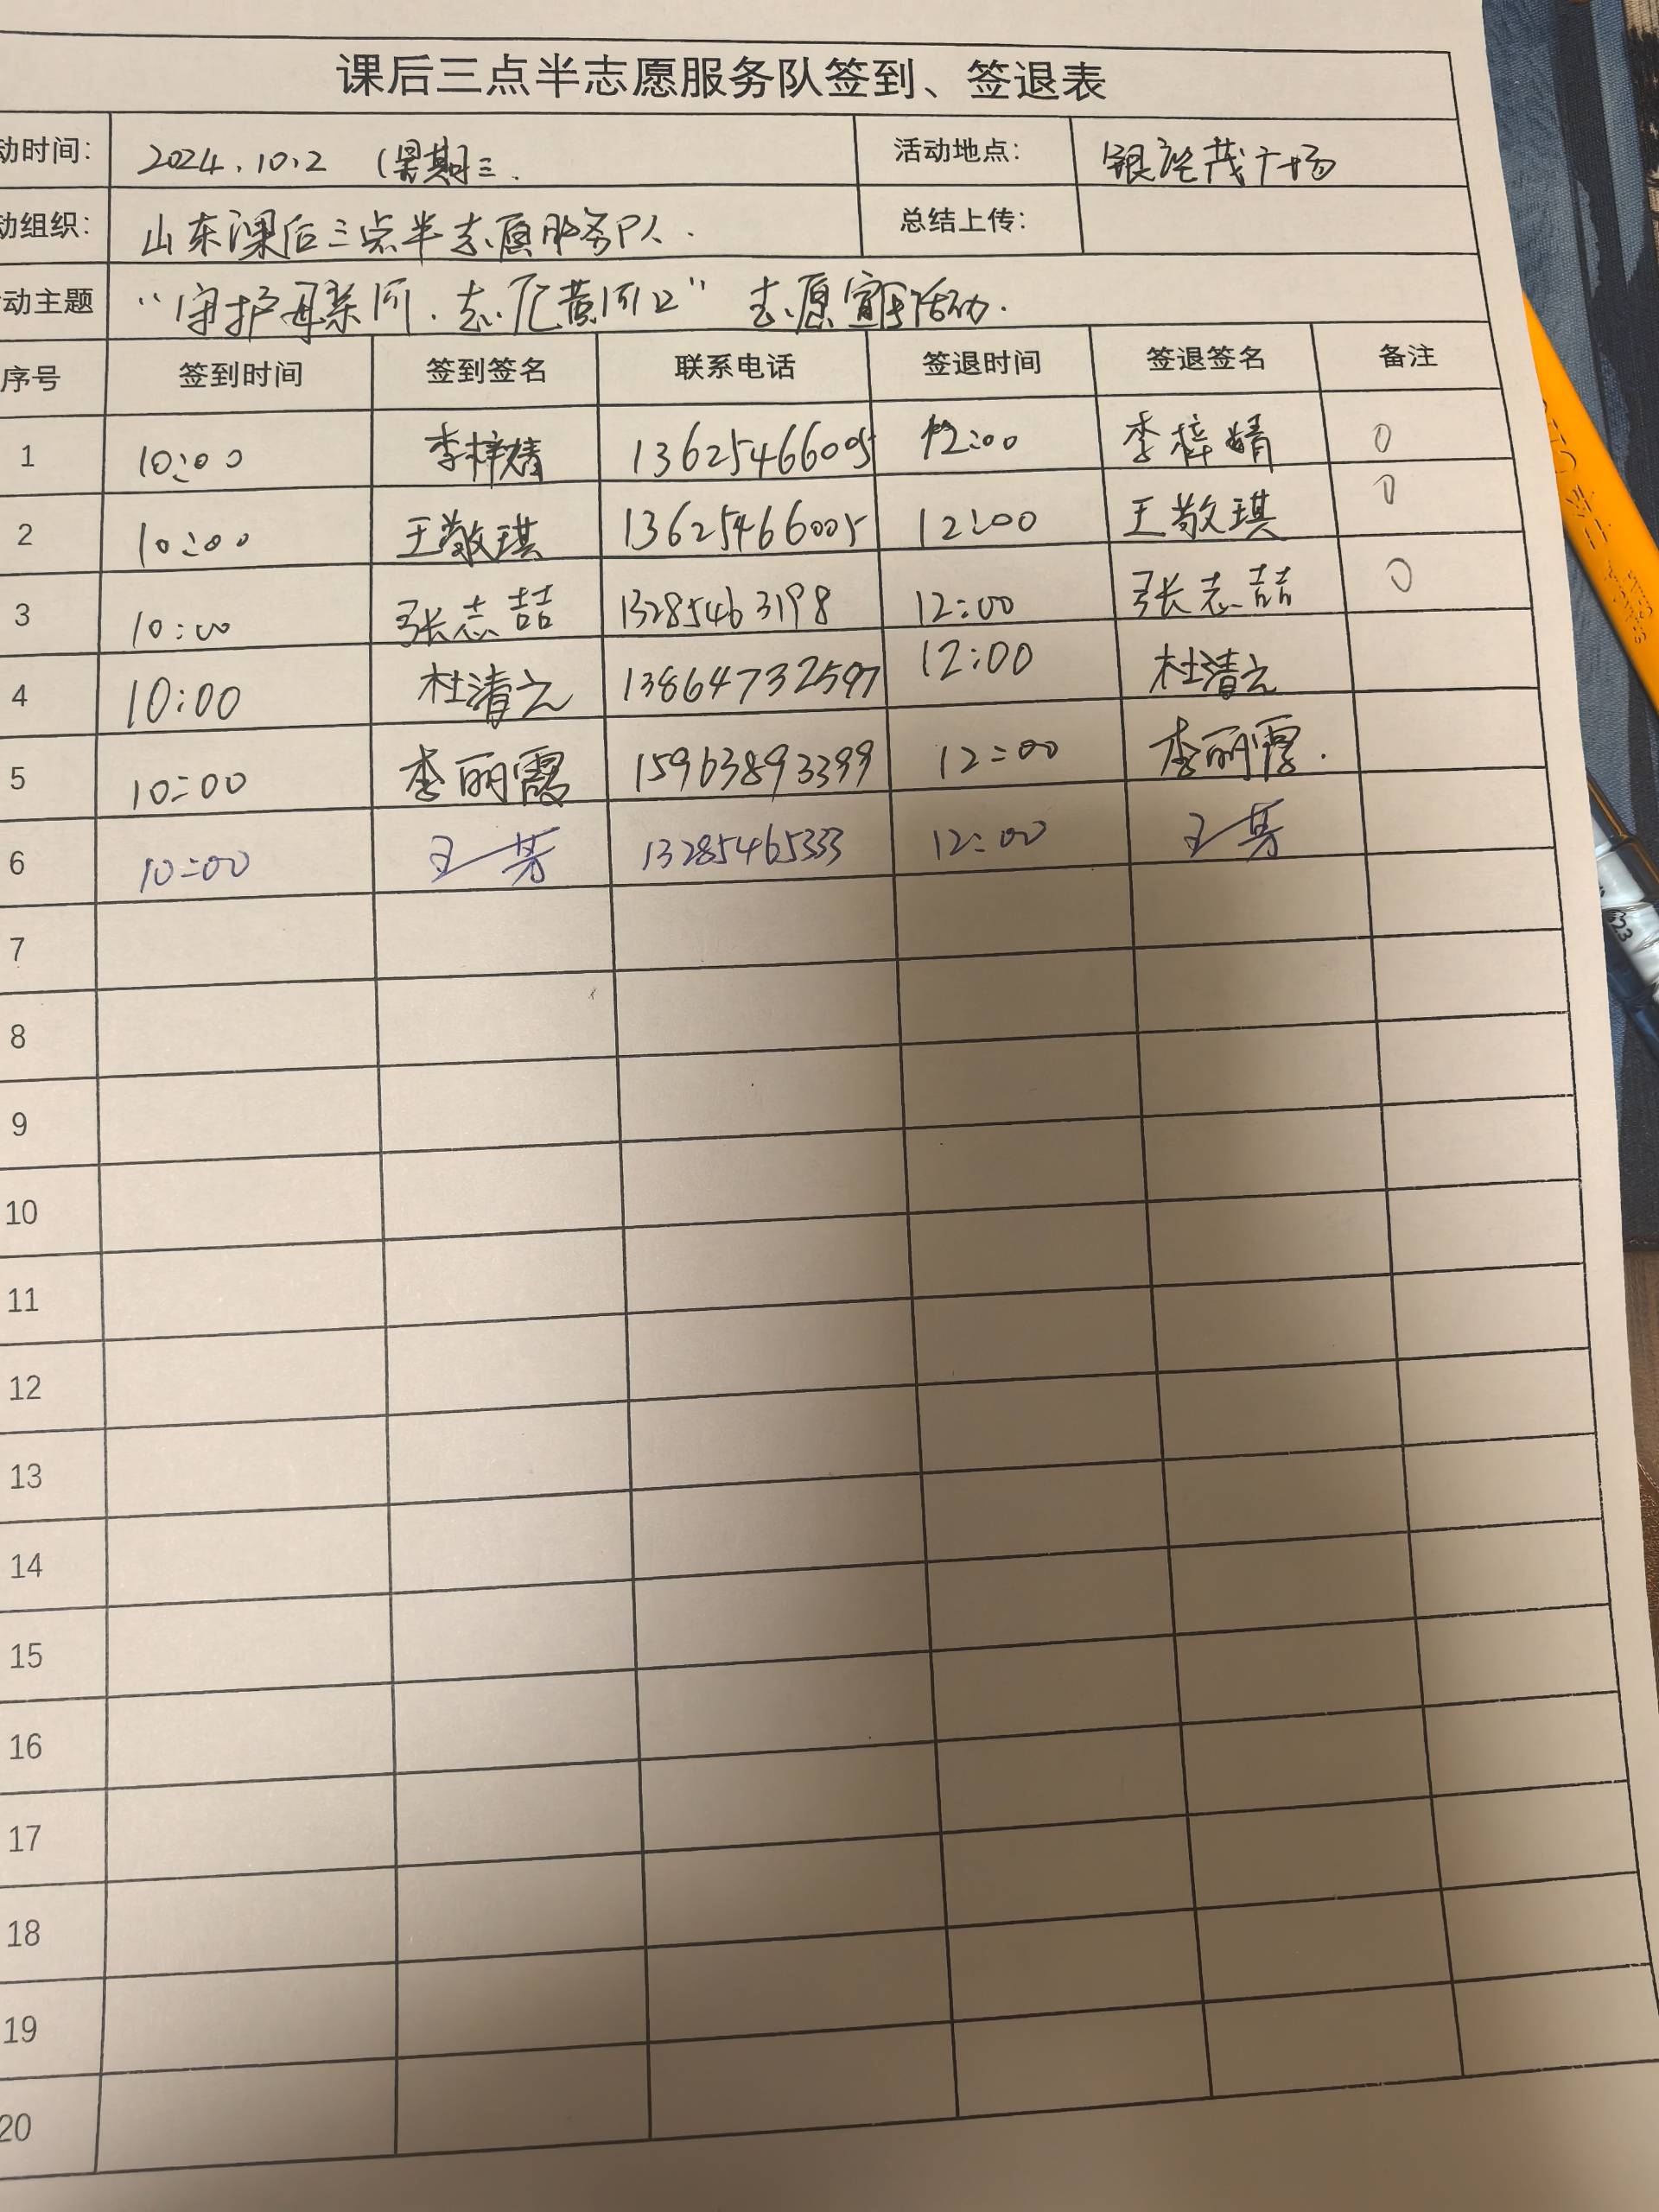 课后三点半志愿服务队签到、签退表
动时间: 2024.10.2 (星期三. 活动地点: 银座茂广场
动组织: 山东课后三点半志愿服务队. 总结上传:
动主题 “守护母亲河.志汇黄河口” 志愿宣传活动.
序号 签到时间 签到签名 联系电话 签退时间 签退签名 备注
1 10:00 李梓婧 13625466005 12:00 李梓婧 0
2 10:00 王敬琪 13625466005 12:00 王敬琪 0
3 10:00 张志喆 13285463198 12:00 张志喆 0
4 10:00 杜清云 13864732597 12:00 杜清云
5 10:00 李丽霞 15963893399 12:00 李丽霞.
6 10:00 王芳 13285465333 12:00 王芳
7
8
9
10
11
12
13
14
15
16
17
18
19
20